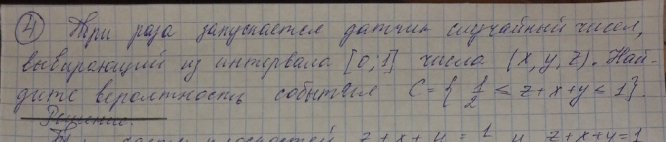 ④ Три раза запускается датчик случайный чисел,
выбирающий из интервала [0,1] числа (x, y, z). Най-
дите вероятность события C = { 1/2 ≤ z+x+y ≤ 1}.
Решение:
z+x+y = 1 и z+x+y=1